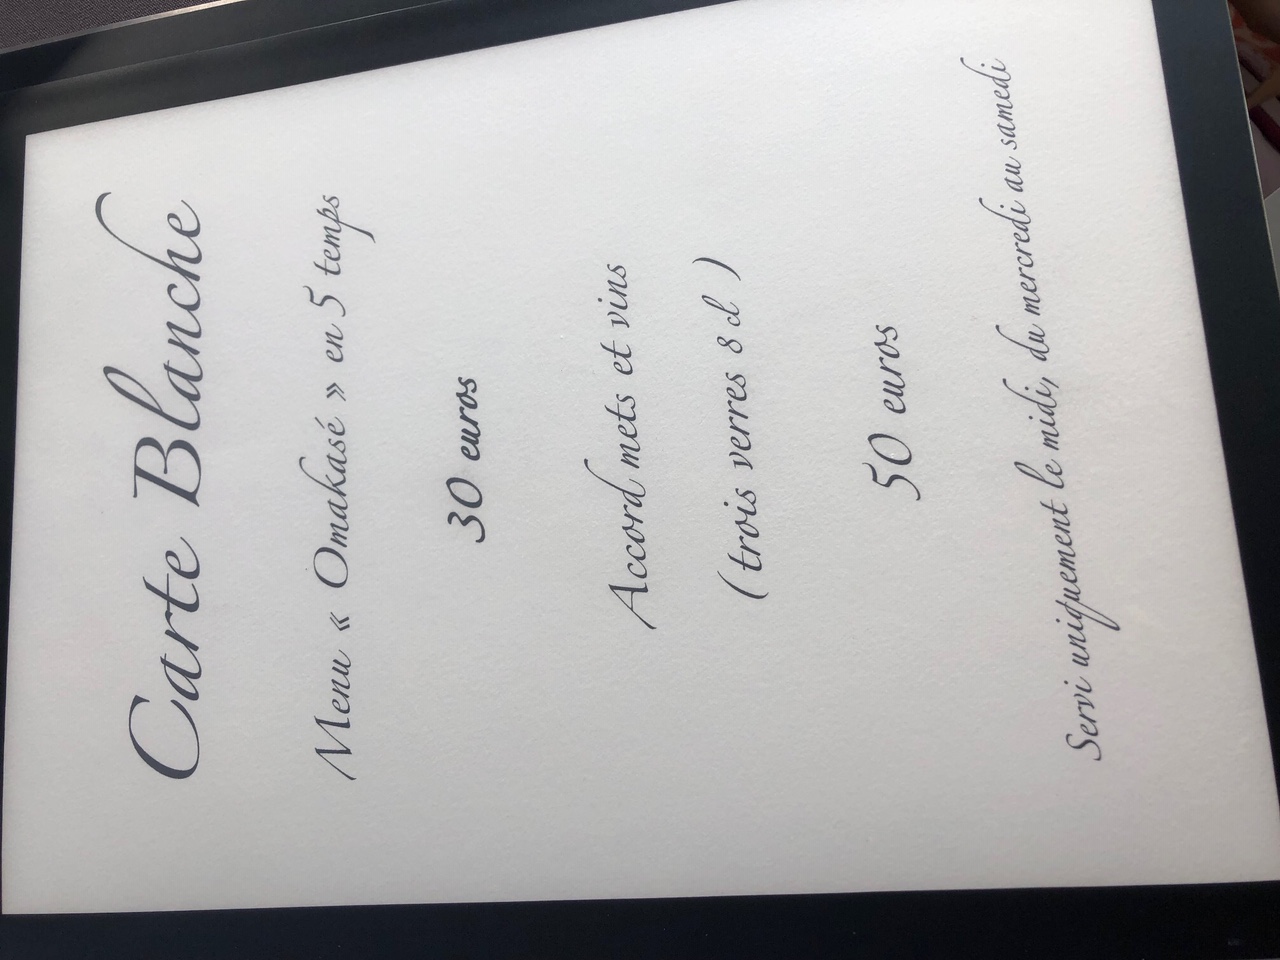 Carte Blanche
Menu « Omakasé » en 5 temps
30 euros
Accord mets et vins
( trois verres 8 cl )
50 euros
Servi uniquement le midi, du mercredi au samedi